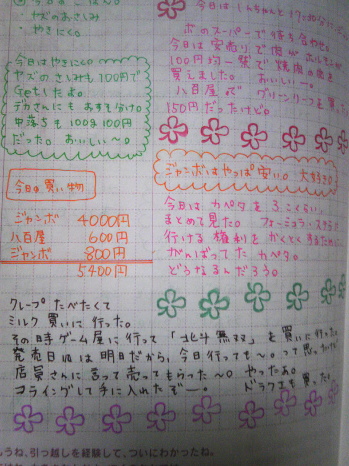 ・ヤズのおさしみ
・やきにく。
今日はやきにく◎
ヤズのさしみも100円で
Getしたよ。
デカさんにも おすそ分け◎
中落ちも 100g 100円
だった。おいしい〜◎。
今日の買い物
ジャンボ 4000円
八百屋 600円
ジャンボ 800円
5400円
今日は しんちゃんと
ボのスーパーで待ち合わせ。
今日は安売りで
100円均一祭で 焼肉の肉を
買えました。おいしいー。
八百屋で グリーンリーフを
150円だったけど。
ジャンボはやっぱ安い。大好き◎
今日は カペタを 3こくらい、
まとめて見た。フォーミュラ
行ける権利を かくとくするために
がんばってた カペタ。
どうなるんだろう。
クレープ たべたくて
ミルク 買いに行った。
その時 ゲーム屋に行って 「北斗無双」を 買いに行った。
発売日は明日だから、今日行っても〜。って思ったけど
店員さんに言って売ってもらった〜。やったぁ。
フライングして手に入れたぞー。 ドラクエも買った
うね、引っ越しを経験して、ついにわかったね。